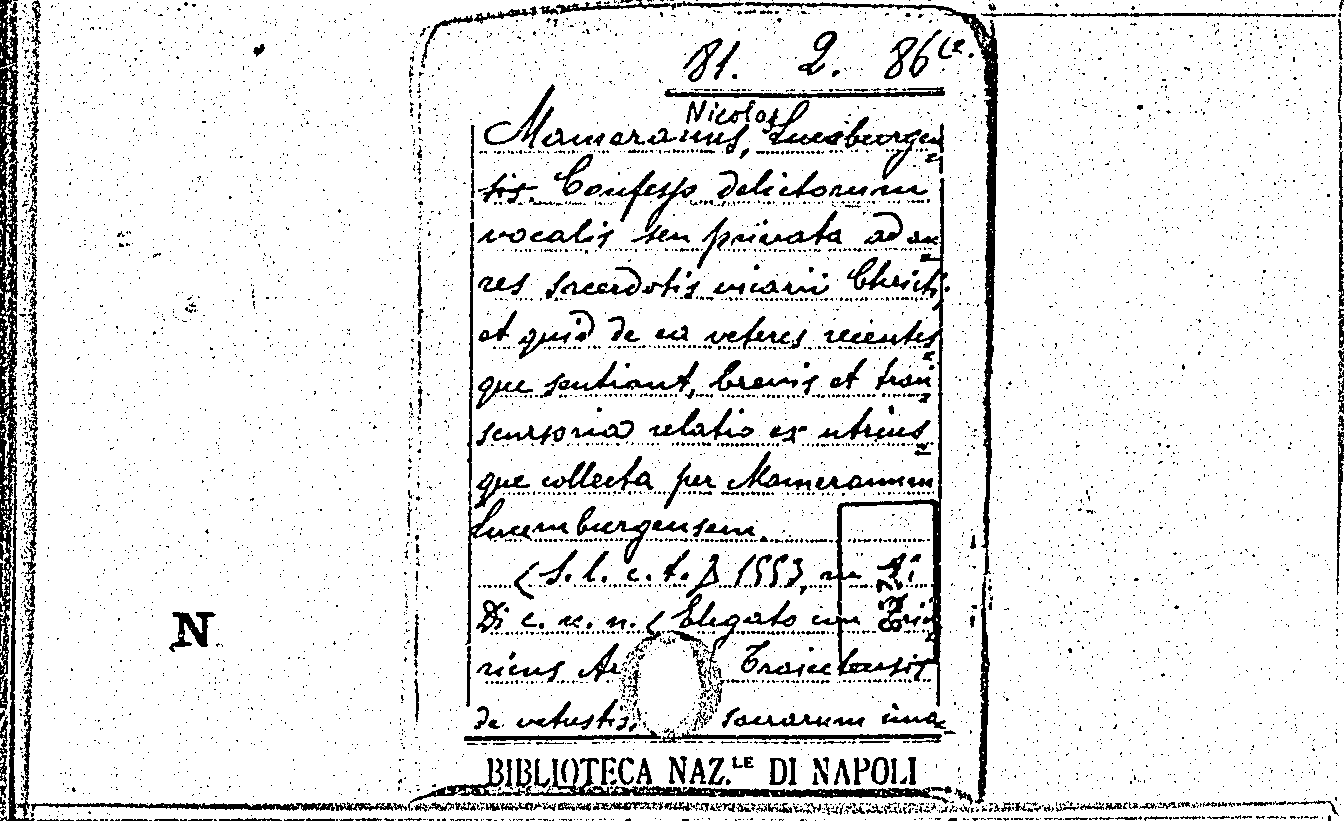 81. 2. 86(2.
Nicolas
Mameranus, Lucebeurgen=
sis. Confesso delictorum
vocalis seu privata ad au=
res sacerdotis vicarii Christi,
et quid de ea veteres recentes=
que sentiant, brevis et tran=
scursoria relatio ex utrius=
que collecta per Mameranum
Lucemburgensem.
(S. l. e. t.) 1553, in
Di c. n. n. ( Elegato con
ricus Ar Traiectensis
de vetustis, sacrarum ima=
N
BIBLIOTECA NAZ.LE DI NAPOLI